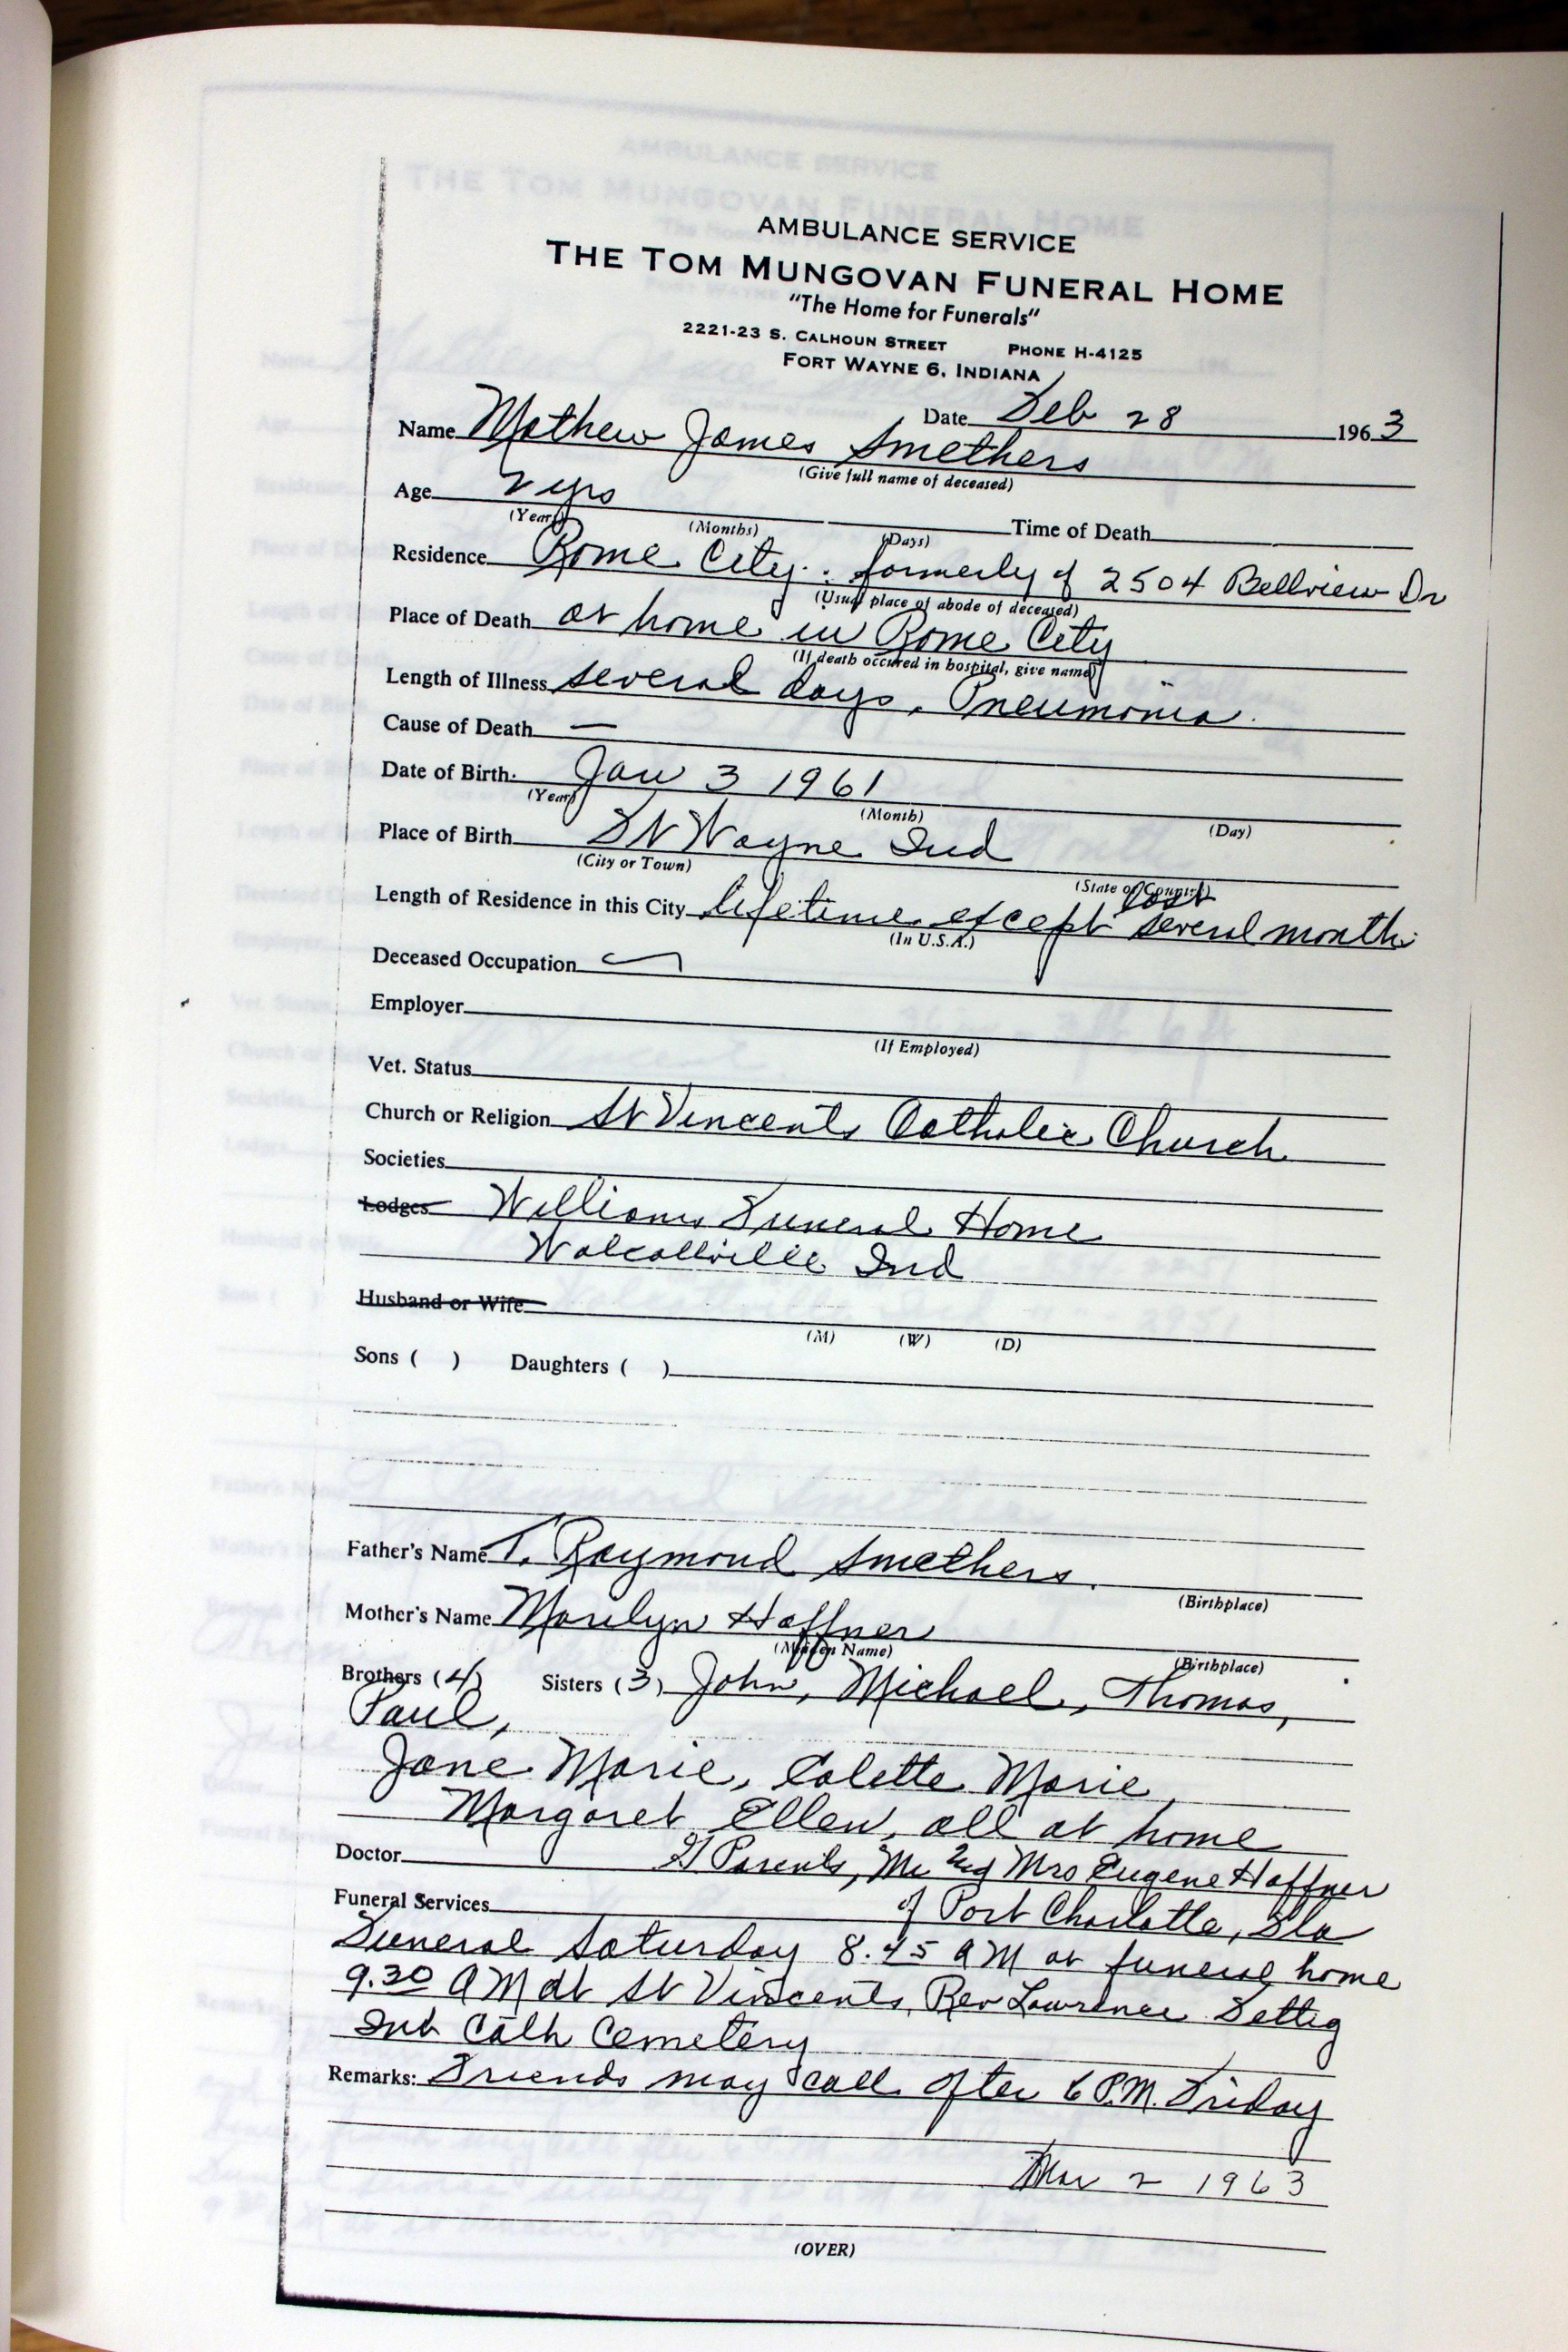 AMBULANCE SERVICE
THE TOM MUNGOVAN FUNERAL HOME
"The Home for Funerals"
2221-23 S. CALHOUN STREET PHONE H-4125
FORT WAYNE 6, INDIANA
Date Feb 28 1963
Name Mathew James Smethers
(Give full name of deceased)
Age 2 yrs Time of Death
(Years) (Months) (Days)
Residence Rome City. formerly of 2504 Bellview Dr
(Usual place of abode of deceased)
Place of Death at home in Rome City
(If death occured in hospital, give name)
Length of Illness several days, Pneumonia.
Cause of Death —
Date of Birth. Jan 3 1961
(Year) (Month) (Day)
Place of Birth Ft Wayne Ind
(City or Town) (State or Country)
last
Length of Residence in this City lifetime except several month
(In U.S.A.)
Deceased Occupation
Employer
(If Employed)
Vet. Status
Church or Religion St Vincents Catholic Church
Societies
Lodges Williams Funeral Home
Wolcottville Ind
Husband or Wife
(M) (W) (D)
Sons ( ) Daughters ( )
Father's Name T. Raymond Smethers.
(Birthplace)
Mother's Name Marilyn Haffner
(Maiden Name) (Birthplace)
Brothers (4) Sisters (3) John, Michael, Thomas,
Paul,
Jane Marie, Colette Marie,
Margaret Ellen, all at home
Doctor G Parents, Mr and Mrs Eugene Haffner
Funeral Services of Port Charlotte, Fla
Funeral Saturday 8.45 AM at funeral home
9.30 AM at St Vincents, Rev Lawrence Fettig
Int Cath Cemetery
Remarks: Friends may call after 6 P.M. Friday
Mar 2 1963
(OVER)